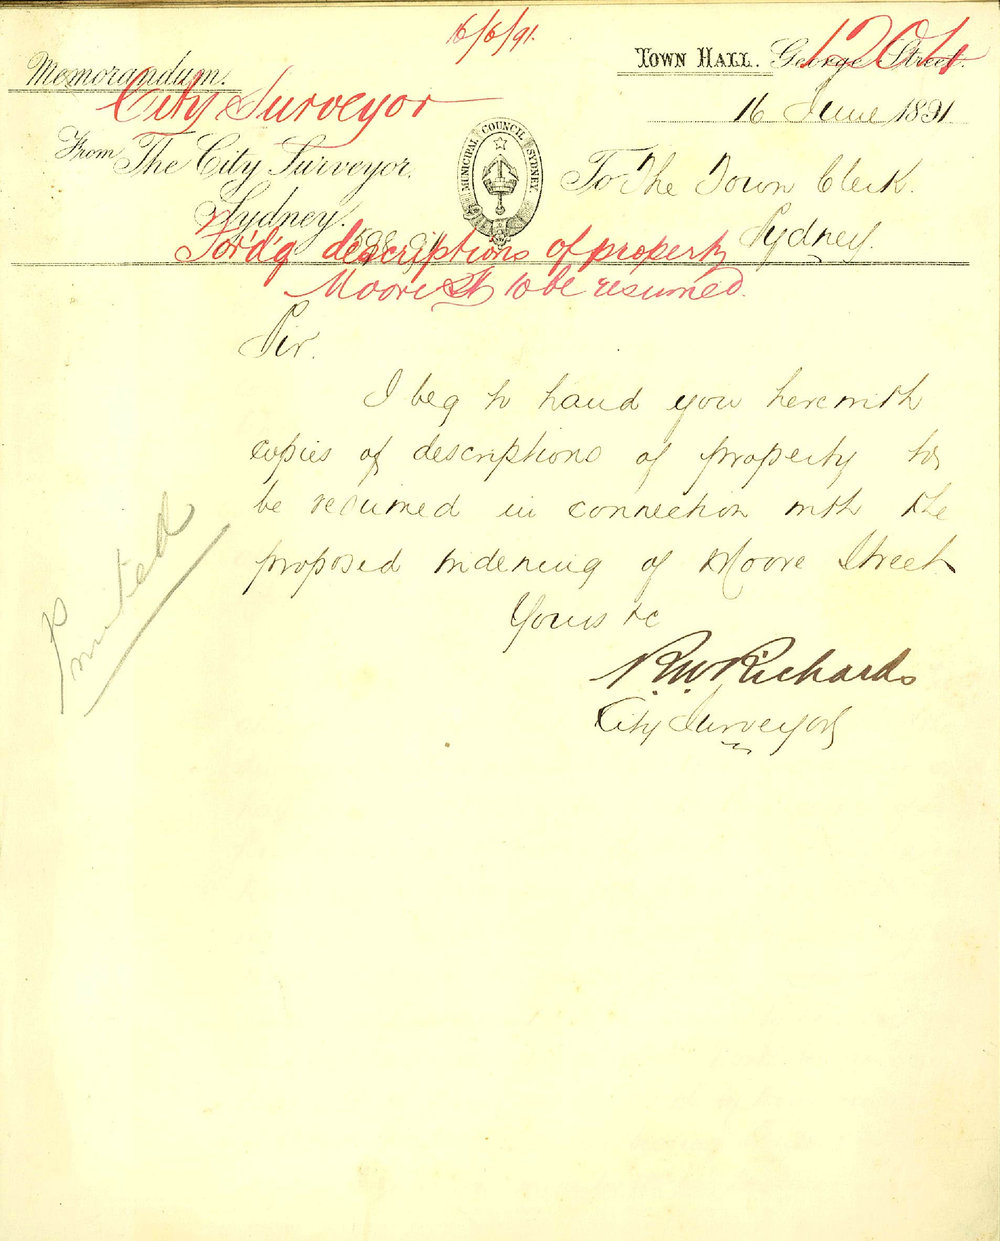 16/6/91.
1204
Memorandum.
TOWN HALL. George Street.
City Surveyor
16 June 1891
From The City Surveyor.
MUNICIPAL COUNCIL SYDNEY.
To The Town Clerk.
Sydney.
Sydney.
598.91
For'd'g descriptions of property
Moore St to be resumed.
Sir.
I beg to hand you herewith
copies of descriptions of property to
be resumed in connection with the
proposed widening of Moore Street
Yours &c
R.W. Richards
City Surveyor
Printed